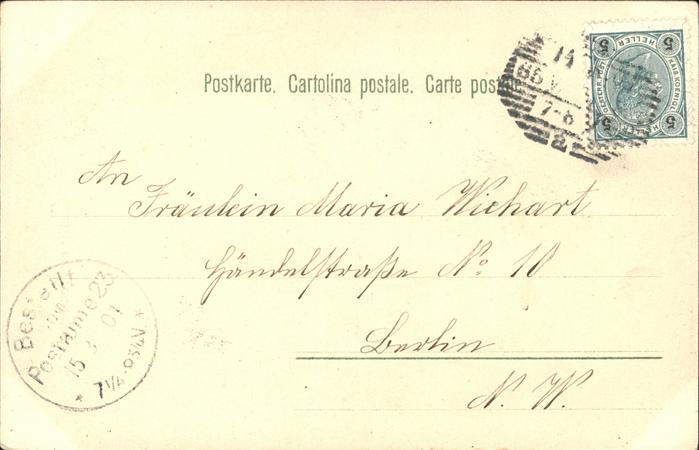 Postkarte. Cartolina postale. Carte post
5 HELLER 5
KAIS. KOENIGL.
5 HELLER 5
14
7-8
An
Fräulein Maria Wichart
Händelstraße No 10
Berlin
N. W.
Bestellt
vom
Postamte 23
15 3 01
* 7¼-9¾V. *